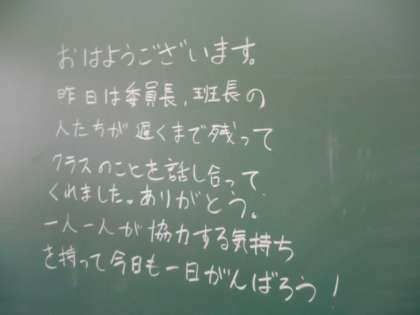 おはようございます。
昨日は委員長、班長の
人たちが遅くまで残って
クラスのことを話し合って
くれました。ありがとう。
一人一人が協力する気持ち
を持って今日も一日がんばろう！